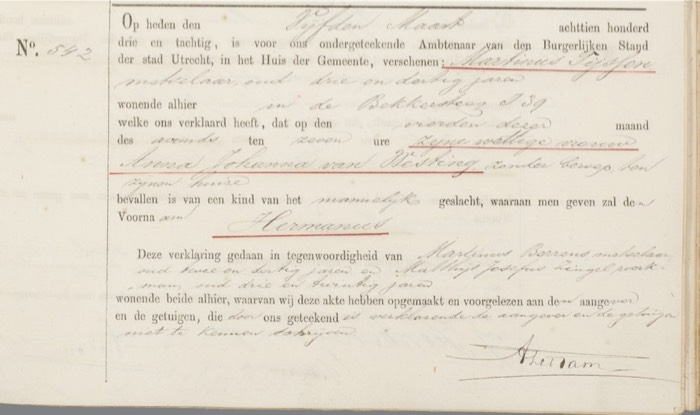 Nº. 542
Op heden den Vijfden Maart achttien honderd
drie en tachtig, is voor ons ondergeteekende Ambtenaar van den Burgerlijken Stand
der stad Utrecht, in het Huis der Gemeente, verschenen: Martinus Tijssen
metselaar, oud drie en dertig jaren
wonende alhier in de Bekkersteeg I 39
welke ons verklaard heeft, dat op den vierden dezer maand
des avonds ten zeven ure zijne wettige vrouw
Anna Johanna van Westing zonder beroep ten
zijnen huize
bevallen is van een kind van het mannelijk geslacht, waaraan men geven zal den
Voornaam
Hermanus
Deze verklaring gedaan in tegenwoordigheid van Martinus Berrens metselaar
oud twee en dertig jaren en Matthijs Josephus Zengel, werk-
man, oud drie en twintig jaren
wonende beide alhier, waarvan wij deze akte hebben opgemaakt en voorgelezen aan den aangever
en de getuigen, die door ons geteekend is verklarende de aangever en de getuigen
niet te kennen schrijven